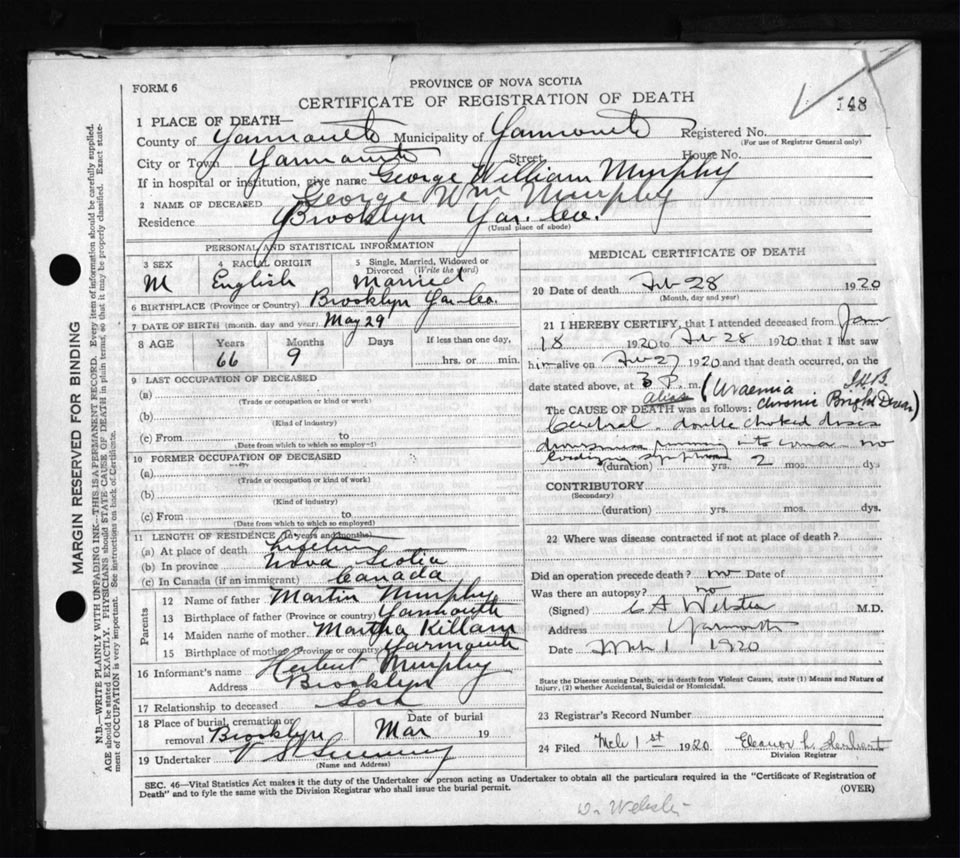 FORM 6
PROVINCE OF NOVA SCOTIA
CERTIFICATE OF REGISTRATION OF DEATH
148
1 PLACE OF DEATH—
County of Yarmouth Municipality of Yarmouth Registered No.
(For use of Registrar General only)
City or Town Yarmouth Street House No.
If in hospital or institution, give name George William Murphy
2 NAME OF DECEASED George Wm Murphy
Residence Brooklyn Yar. Co.
(Usual place of abode)
PERSONAL AND STATISTICAL INFORMATION
3 SEX M
4 RACIAL ORIGIN English
5 Single, Married, Widowed or Divorced (Write the word) Married
6 BIRTHPLACE (Province or Country) Brooklyn Yar. Co.
7 DATE OF BIRTH (month, day and year) May 29
8 AGE Years Months Days If less than one day,
66 9 hrs. or min.
9 LAST OCCUPATION OF DECEASED
(a)
(Trade or occupation or kind or work)
(b)
(Kind of industry)
(c) From to
(Date from which to which so employed)
10 FORMER OCCUPATION OF DECEASED
(a)
(Trade or occupation or kind of work)
(b)
(Kind of industry)
(c) From to
(Date from which to which so employed)
11 LENGTH OF RESIDENCE (In years and months)
(a) At place of death Lifetime
(b) In province Nova Scotia
(c) In Canada (if an immigrant) Canada
Parents
12 Name of father Martin Murphy
13 Birthplace of father (Province or country) Yarmouth
14 Maiden name of mother Martha Killam
15 Birthplace of mother (Province or country) Yarmouth
16 Informant's name Herbert Murphy
Address Brooklyn
17 Relationship to deceased Son
18 Place of burial, cremation or removal Brooklyn Date of burial Mar 19
19 Undertaker V S Sweeny
(Name and Address)
MEDICAL CERTIFICATE OF DEATH
20 Date of death Feb 28 1920
(Month, day and year)
21 I HEREBY CERTIFY, that I attended deceased from Jan
18 1920 to Feb 28 1920 that I last saw
him alive on Feb 27 1920 and that death occurred, on the
date stated above, at 3 P. m. (Uraemia
alias chronic Brights Disease)
The CAUSE OF DEATH was as follows:
double choked discs
running into coma no
(duration) yrs. 2 mos. dys
CONTRIBUTORY
(Secondary)
(duration) yrs. mos. dys.
22 Where was disease contracted if not at place of death?
Did an operation precede death? no Date of
Was there an autopsy? no
(Signed) C A Webster M.D.
Address Yarmouth
Date Mch 1 1920
State the Disease causing Death, or in death from Violent Causes, state (1) Means and Nature of Injury, (2) whether Accidental, Suicidal or Homicidal.
23 Registrar's Record Number
24 Filed Mch 1st 1920 Eleanor L. Herbert
Division Registrar
SEC. 46—Vital Statistics Act makes it the duty of the Undertaker or person acting as Undertaker to obtain all the particulars required in the "Certificate of Registration of
Death" and to fyle the same with the Division Registrar who shall issue the burial permit. (OVER)
Dr Webster
MARGIN RESERVED FOR BINDING
N.B.—WRITE PLAINLY WITH UNFADING INK—THIS IS A PERMANENT RECORD. Every item of information should be carefully supplied.
AGE should be stated EXACTLY. PHYSICIANS should STATE CAUSE OF DEATH in plain terms, so that it may be properly classified. Exact state-
ment of OCCUPATION is very important. See instructions on back of Certificate.